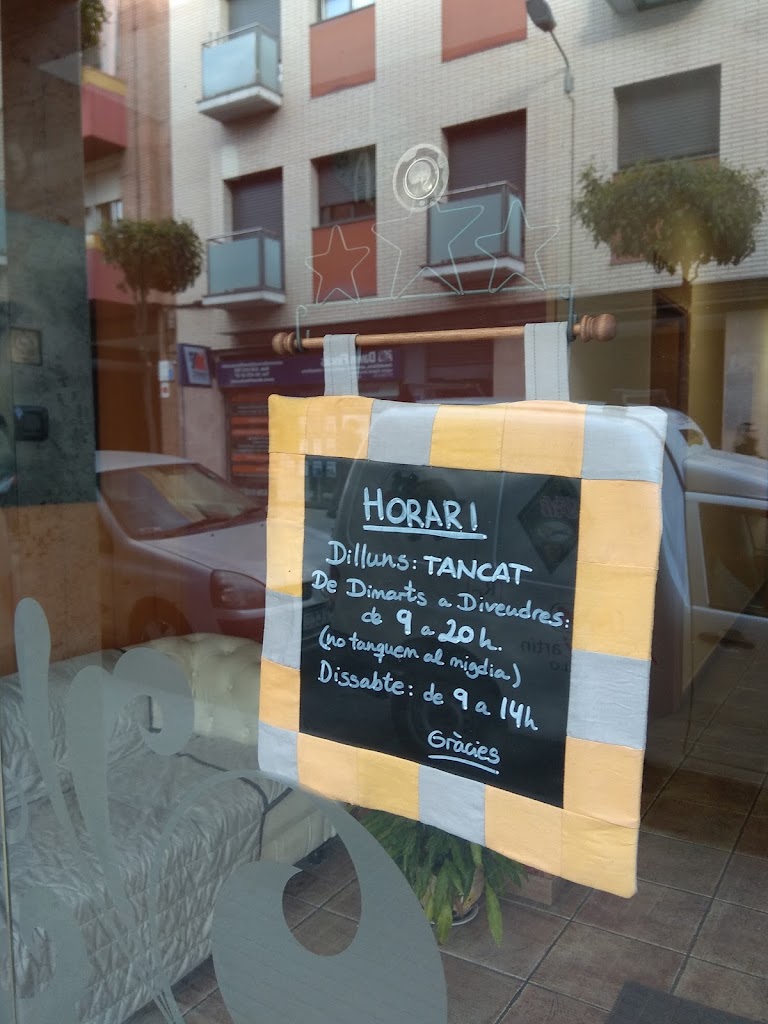 HORARI
Dilluns: TANCAT
De Dimarts a Divendres:
de 9 a 20h.
(no tanquem al migdia)
Dissabte: de 9 a 14h
Gràcies